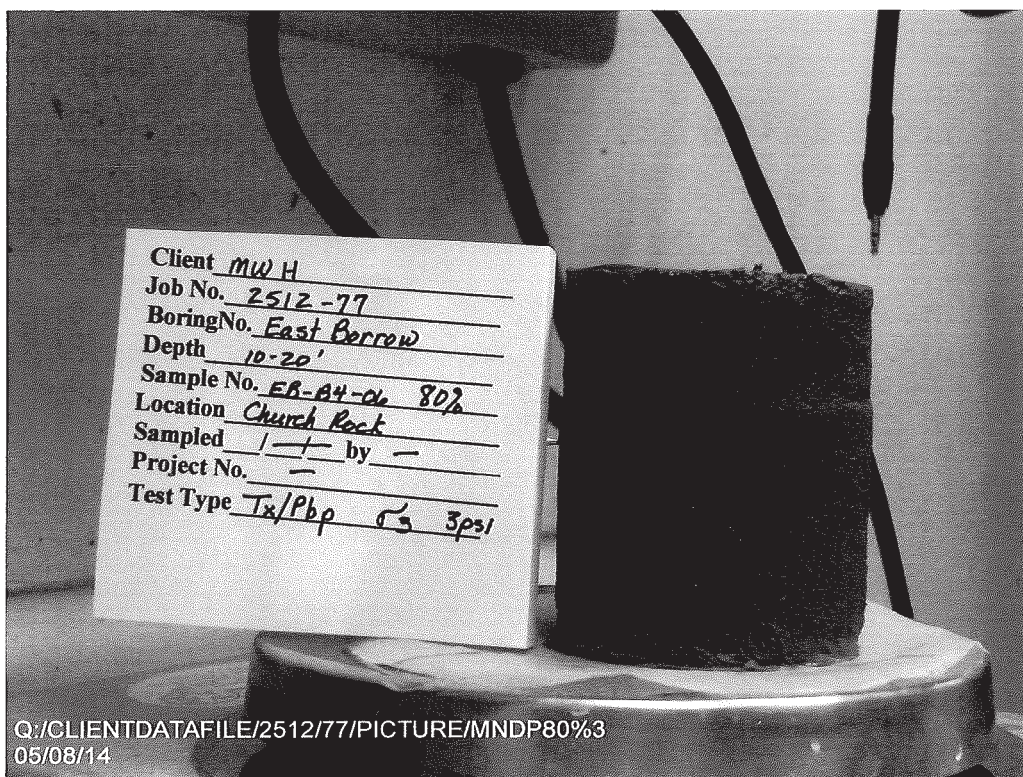 Client MWH
Job No. 2512-77
BoringNo. East Borrow
Depth 10-20'
Sample No. EB-B4-06 80%
Location Church Rock
Sampled / — / — by —
Project No. —
Test Type Tx/Pbp σ3 3psi
Q:/CLIENTDATAFILE/2512/77/PICTURE/MNDP80%3
05/08/14